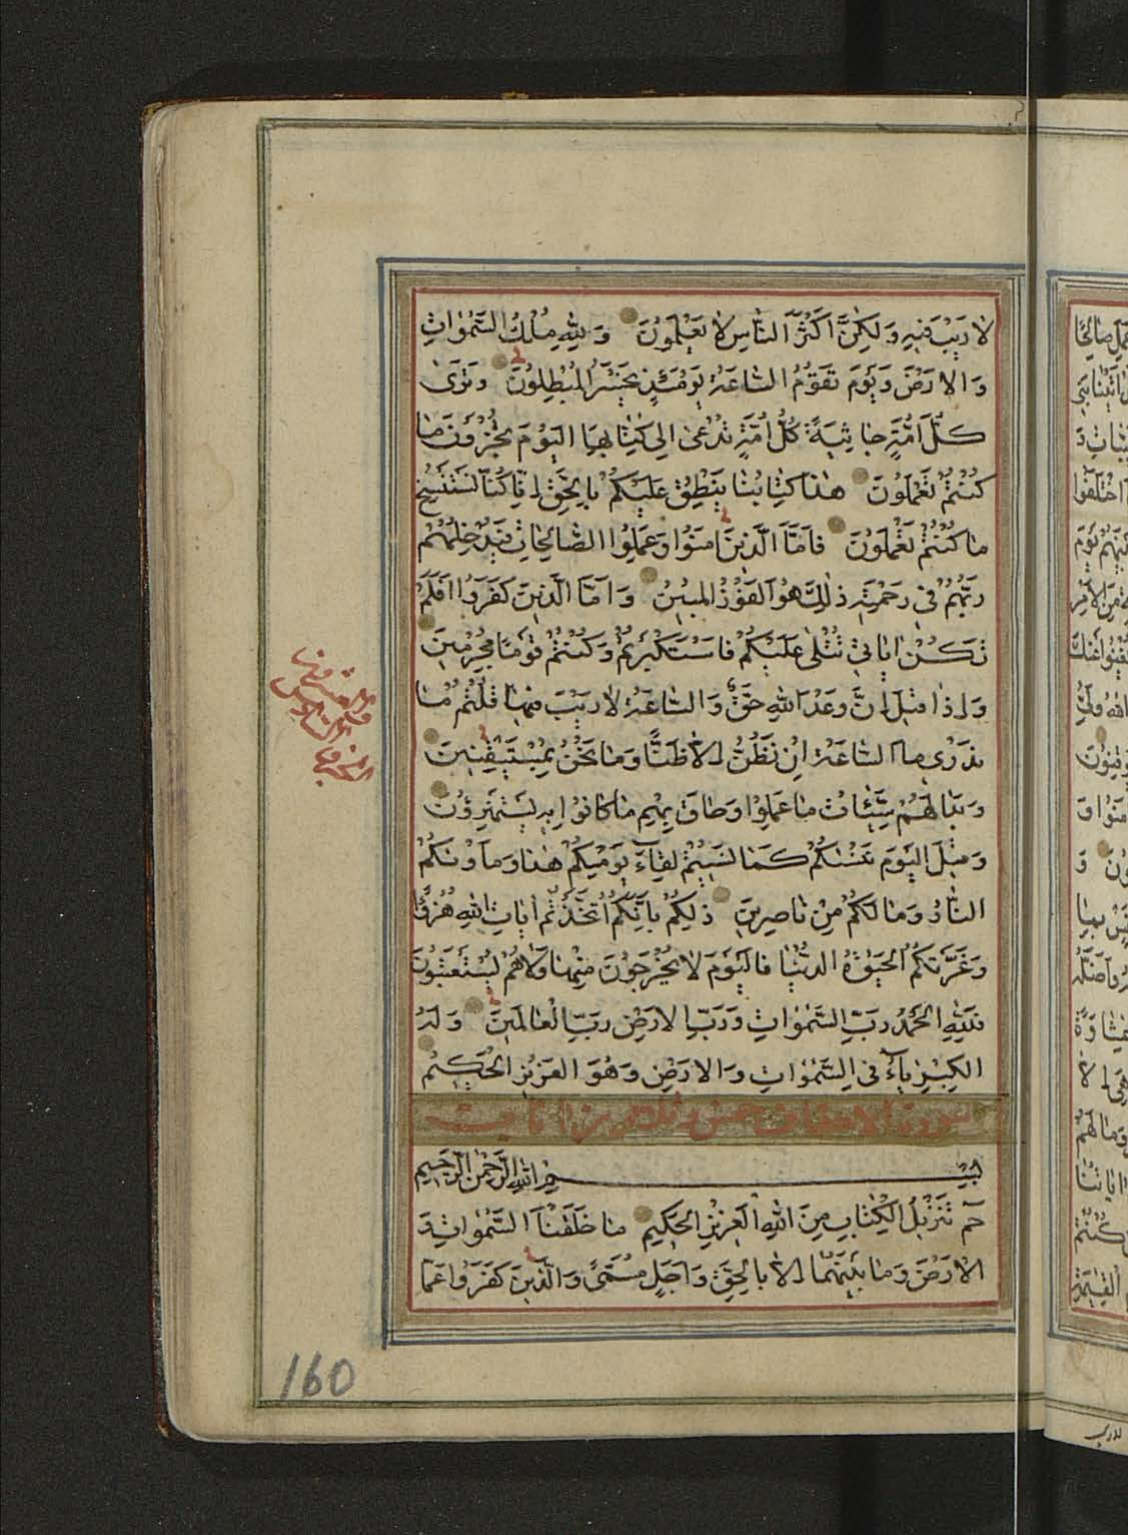 لا رَيْبَ فيهِ وَلكِنَّ اَكْثَرَ النّاسِ لا يَعْلَمُونَ وَ لِلّهِ مُلْكُ السَّمٰواتِ
وَ الارَضِ وَ يَوْمَ تَقُومُ السّاعَةُ يَوْمَئِذٍ يَخْسَرُ الْمُبْطِلُونَ وَ تَرىٰ
كُلَّ اُمَّةٍ جاثِيَةً كُلُّ اُمَّةٍ تُدْعىٰ اِلى كِتابِهَا اليَوْمَ تُجْزَوْنَ ما
كُنْتُمْ تَعْمَلُونَ هٰذا كِتابُنا يَنْطِقُ عَلَيْكُمْ بِالْحَقِّ اِنّا كُنّا نَسْتَنْسِخُ
ما كُنْتُمْ تَعْمَلُونَ فَاَمَّا الَّذينَ اٰمَنُوا وَ عَمِلُوا الصّالِحاتِ فَيُدْخِلُهُمْ
رَبُّهُمْ في رَحْمَتِهِ ذٰلِكَ هُوَ الْفَوْزُ الْمُبينُ وَ اَمَّا الَّذينَ كَفَرُوا اَفَلَمْ
تَكُنْ اٰياتي تُتْلىٰ عَلَيْكُمْ فَاسْتَكْبَرْتُمْ وَ كُنْتُمْ قَوْمًا مُجْرِمينَ
وَ اِذا قيلَ اِنَّ وَعْدَ اللهِ حَقٌّ وَ السّاعَةُ لا رَيْبَ فيها قُلْتُمْ ما
نَدْري ما السّاعَةُ اِنْ نَظُنُّ اِلّا ظَنًّا وَ ما نَحْنُ بِمُسْتَيْقِنينَ
وَ بَدا لَهُمْ سَيِّئاتُ ما عَمِلُوا وَ حاقَ بِهِمْ ما كانُوا بِهِ يَسْتَهْزِؤُنَ
وَ قيلَ اليَوْمَ نَنْسٰكُمْ كَما نَسيتُمْ لِقاءَ يَوْمِكُمْ هٰذا وَ مَأْوٰيكُمْ
النّارُ وَ ما لَكُمْ مِنْ ناصِرينَ ذٰلِكُمْ بِاَنَّكُمُ اتَّخَذْتُمْ اٰياتِ اللهِ هُزُوًا
وَ غَرَّتْكُمُ الْحَيٰوةُ الدُّنْيا فَالْيَوْمَ لا يُخْرَجُونَ مِنْها وَلا هُمْ يُسْتَعْتَبُونَ
فَلِلّهِ الْحَمْدُ رَبِّ السَّمٰواتِ وَ رَبِّ الارَضِ رَبِّ الْعالَمينَ وَ لَهُ
الْكِبْرِياءُ فِي السَّمٰواتِ وَ الارَضِ وَ هُوَ العَزيزُ الْحَكيمُ
سورة الاحقاف خمس و ثلاثون اية
بِسْمِ اللهِ الرَّحْمٰنِ الرَّحيمِ
حم تَنْزيلُ الْكِتابِ مِنَ اللهِ الْعَزيزِ الْحَكيمِ ما خَلَقْنَا السَّمٰواتِ وَ
الارَضَ وَ ما بَيْنَهُما اِلّا بِالْحَقِّ وَ اَجَلٍ مُسَمًّى وَ الَّذينَ كَفَرُوا عَمّا
160